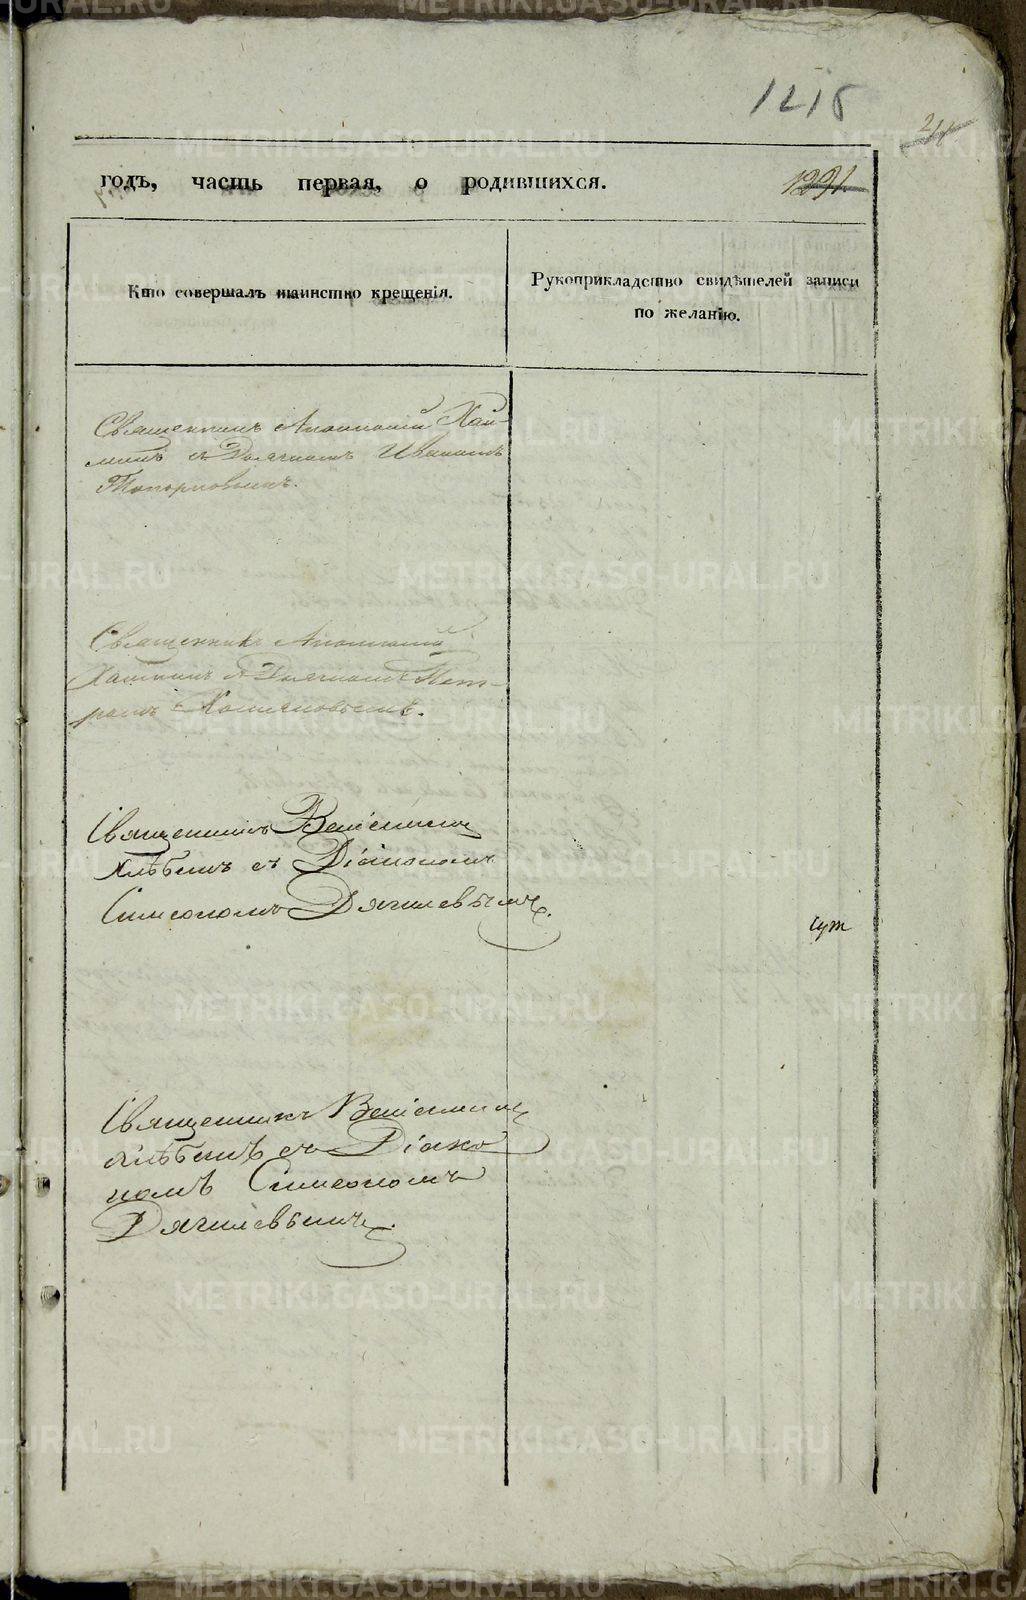 1215
1291.
годъ, часть первая, о родившихся.
Кто совершалъ таинство крещенія.
Рукоприкладство свидѣтелей записи
по желанію.
Священникъ
съ Дьячкомъ Иваномъ
Топорковымъ.
Священникъ
съ Дьячкомъ Пет-
ромъ
Священникъ Веніаминъ
Хлѣбинъ съ Діакономъ
Симеономъ Дягилевымъ.
Священникъ Веніаминъ
Хлѣбинъ съ Діако
номъ Симеономъ
Дягилевымъ.
METRIKI.GASO-URAL.RU